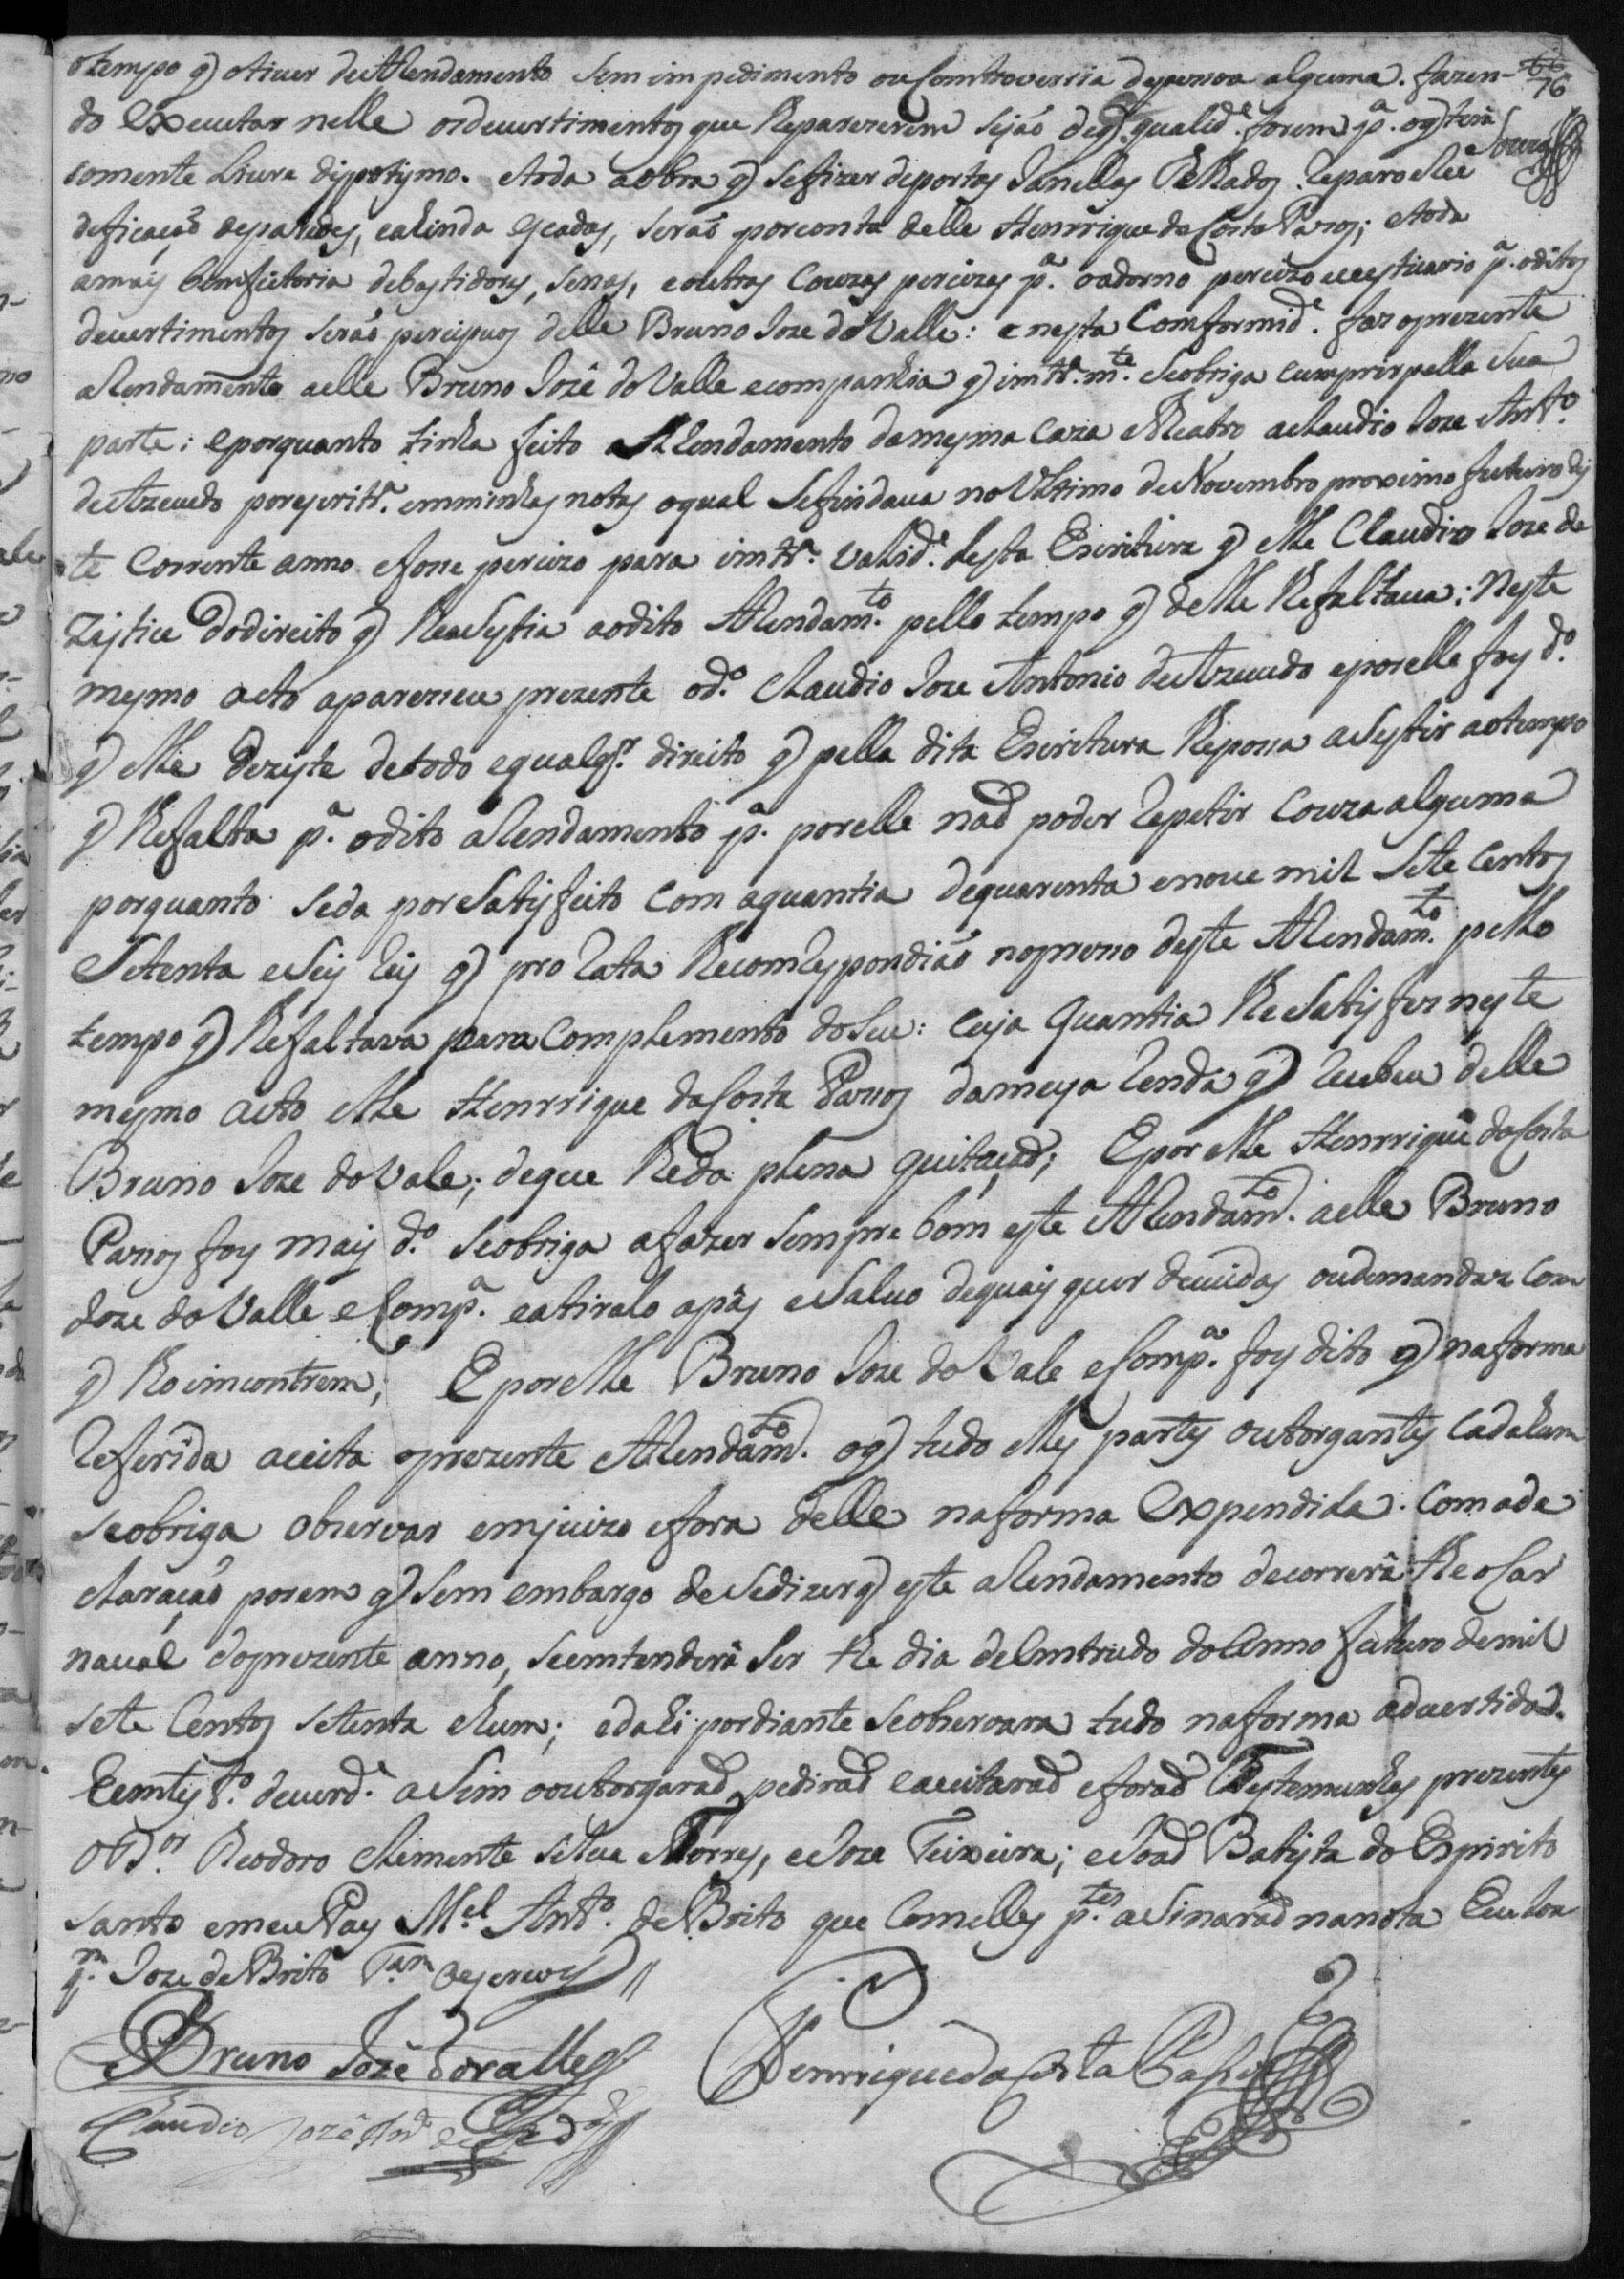 o tempo q̃ o tiver de Arendamento sem impedimento ou Controverssia de pesoa alguma. fazen-
76
do executar nelle os devertimentos que lhe parecerem sejão de q̃. qualid.e forem p.a o q̃ terá
Souza
somente livre dispotysmo. e toda a obra q̃ se fizer de portas Janellas Telhados Reparo e Ree
deficação de paredes, e ahinda escadas, serão por conta delle Henrrique da Costa Passos; e toda
a mays bemfeitoria de bastidores, senas, e outras Couzas percizas p.a o adorno percizo e vestuario p.a os ditos
devertimentos serão percipuos delle Bruno Joze do Valle: e nesta Comformid.e faz o prezente
aRendamento a elle Bruno Jozé do Valle e companhia q̃ imtr.a m.te se obriga cumprir pella sua
parte: e porquanto tinha feito aRendamento da mesma Caza e Theatro a Claudio Joze Ant.o
de Azevedo por escrit.a em minhas notas o qual se findava no Ultimo de Novembro proximo futuro des
te Corrente anno e fose percizo para imtr.a valid.e desta Escritura q̃ elle Claudio Joze de
zistice do direito q̃ lhe asystia ao dito ARendam.to pello tempo q̃ delle lhe faltava: Neste
mesmo acto apareceu prezente o d.o Claudio Joze Antonio de Azevedo e por elle foy d.o
q̃ elle dezyste de todo e qualq.r direito q̃ pella dita Escritura lhe possa asystir ao tempo
q̃ lhe falta p.a o dito aRendamento p.a por elle não poder Repetir Couza alguma
porquanto se da por satisfeito com a quantia de quarenta e nove mil sete centos
Setenta e seis Reis q̃ pro Rata lhe comRespondião no preso deste ARendam.to pello
tempo q̃ lhe faltava para Complemento do seu: Cuja quantia lhe satisfez neste
mesmo acto elle Henrrique da Costa Passos da meya Renda q̃ Recebeu delle
Bruno Joze do Vale; de que lhe da plena quitação; E por elle Henrrique da Costa
Passos foy mais d.o se obriga a fazer sempre bom este ARendam.to a elle Bruno
Joze do Valle e Comp.a e a tiralo a pás e salvo de quais quer duvidas ou demandas com
q̃ lho incontrem; E por elle Bruno Joze do Vale e Comp.a foy dito q̃ na forma
Referida aceita o prezente ARendam.to o q̃ tudo elles partes outorgantes Cada hum
se obriga observar em juizo e fora delle na forma expendida. Com a de
claração porem q̃ sem embargo de se dizer q̃ este aRendamento decorrerá the o Car
naval do prezente anno, se emtenderá ser the dia de Emtrudo do Anno futuro de mil
sete Centos setenta e hum; e dahi por diante se observara tudo na forma advertida.
E em tes.to de verd.e asim o outorgarão, pedirão e aceitarão e forão Testemunhas prezentes
o D.or Theodoro Clemente Silva e Torres, e Joze Teixeira; e João Batista do Espirito
Santo e meu Pay M.el Ant.o de Brito que com elles p.tes asinarão na nota Eu Joa
q.m Joze de Brito T.am o escrevy
Bruno Jozé do Valle
Henrrique da Costa Passos
Claudio Jozé Ant.o de Azevedo